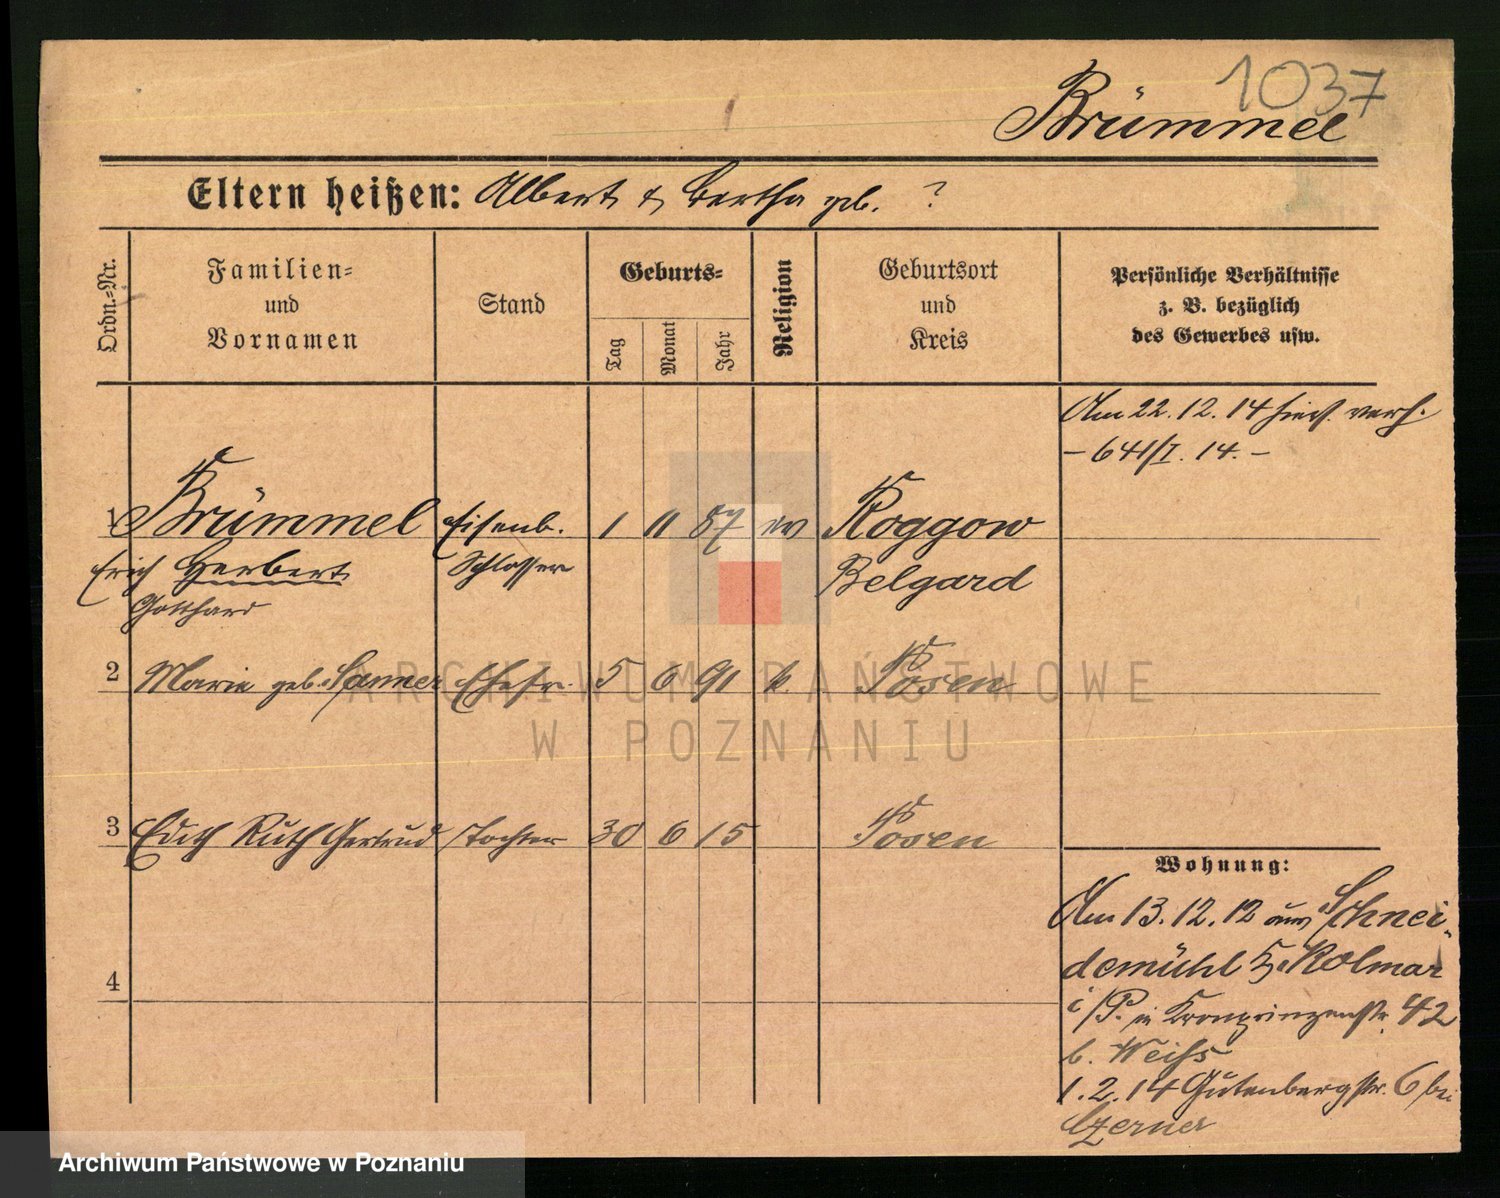 1037
Brümmel
Eltern heißen: Albert & Bertha geb. ?
Ordn.-Nr.
Familien-
und
Vornamen
Stand
Geburts-
Tag
Monat
Jahr
Religion
Geburtsort
und
Kreis
Persönliche Verhältnisse
z. B. bezüglich
des Gewerbes usw.
Am 22.12.14 hier verh.
- 641/I. 14. -
1 Brümmel Eisenb. 1 11 87 ev Roggow
Erich Herbert Schlosser Belgard
Gotthard
2 Marie geb. Ehefr. 5 6 91 k. Posen
3 Edith Ruth Gertrud Tochter 30 6 15 Posen
4
Wohnung:
Am 13.12.12 aus Schnei-
demühl Kolmar
i/P. in Kronprinzenstr. 42
b. Weiß
1.2.14 Gutenbergstr. 6 bei
Czerner
ARCHIWUM PAŃSTWOWE
W POZNANIU
Archiwum Państwowe w Poznaniu